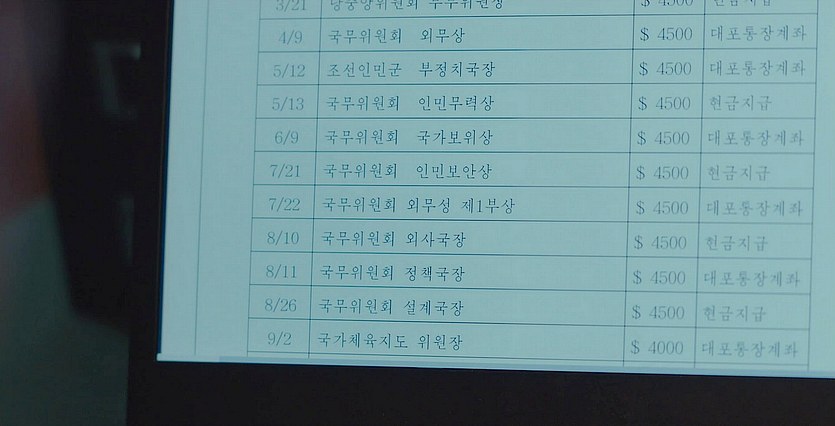 3/21 당중앙위원회 부부위원장 $ 4500 현금지급
4/9 국무위원회 외무상 $ 4500 대포통장계좌
5/12 조선인민군 부정치국장 $ 4500 대포통장계좌
5/13 국무위원회 인민무력상 $ 4500 현금지급
6/9 국무위원회 국가보위상 $ 4500 대포통장계좌
7/21 국무위원회 인민보안상 $ 4500 현금지급
7/22 국무위원회 외무성 제1부상 $ 4500 대포통장계좌
8/10 국무위원회 외사국장 $ 4500 현금지급
8/11 국무위원회 정책국장 $ 4500 대포통장계좌
8/26 국무위원회 설계국장 $ 4500 현금지급
9/2 국가체육지도 위원장 $ 4000 대포통장계좌